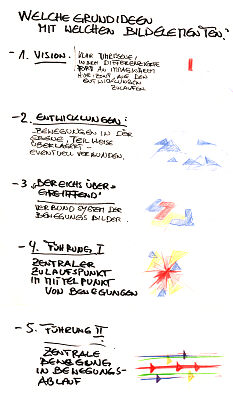 WELCHE GRUNDIDEEN
MIT WELCHEN BILDELEMENTEN.
- 1. VISION.
KLAR
IMMER
HORIZONT, AUF DEN
ENTWICKLUNGEN
ZULAUFEN
- 2. ENTWICKLUNGEN:
BEWEGUNGEN IN DER
EBENE, TEILWEISE
ÜBERLAGERT -
EVENTUELL VERBUNDEN.
- 3 „BEREICHSÜBER-
GREIFFEND"
VERBUNDSYSTEM DER
BEWEGUNGSBILDER.
- 4. FÜHRUNG I
ZENTRALER
ZULAUFSPUNKT
IM MITTELPUNKT
VON BEWEGUNGEN
- 5. FÜHRUNG II
ZENTRALE
BEWEGUNG
IN BEWEGUNGS-
ABLAUF